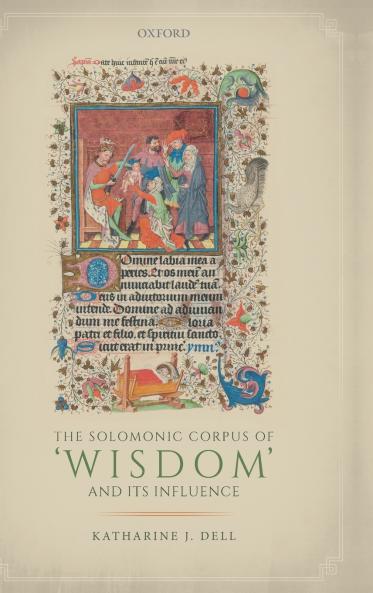 OXFORD
Domine labia mea a
peries. Et os meum an
nunciabit laudem tuam
Deus in adiutorium meum
intende. Domine ad adiuvan
dum me festina. Gloria
patri et filio. et spiritui sancto.
Sicut erat in princ.
THE SOLOMONIC CORPUS OF
‘WISDOM’
AND ITS INFLUENCE
KATHARINE J. DELL